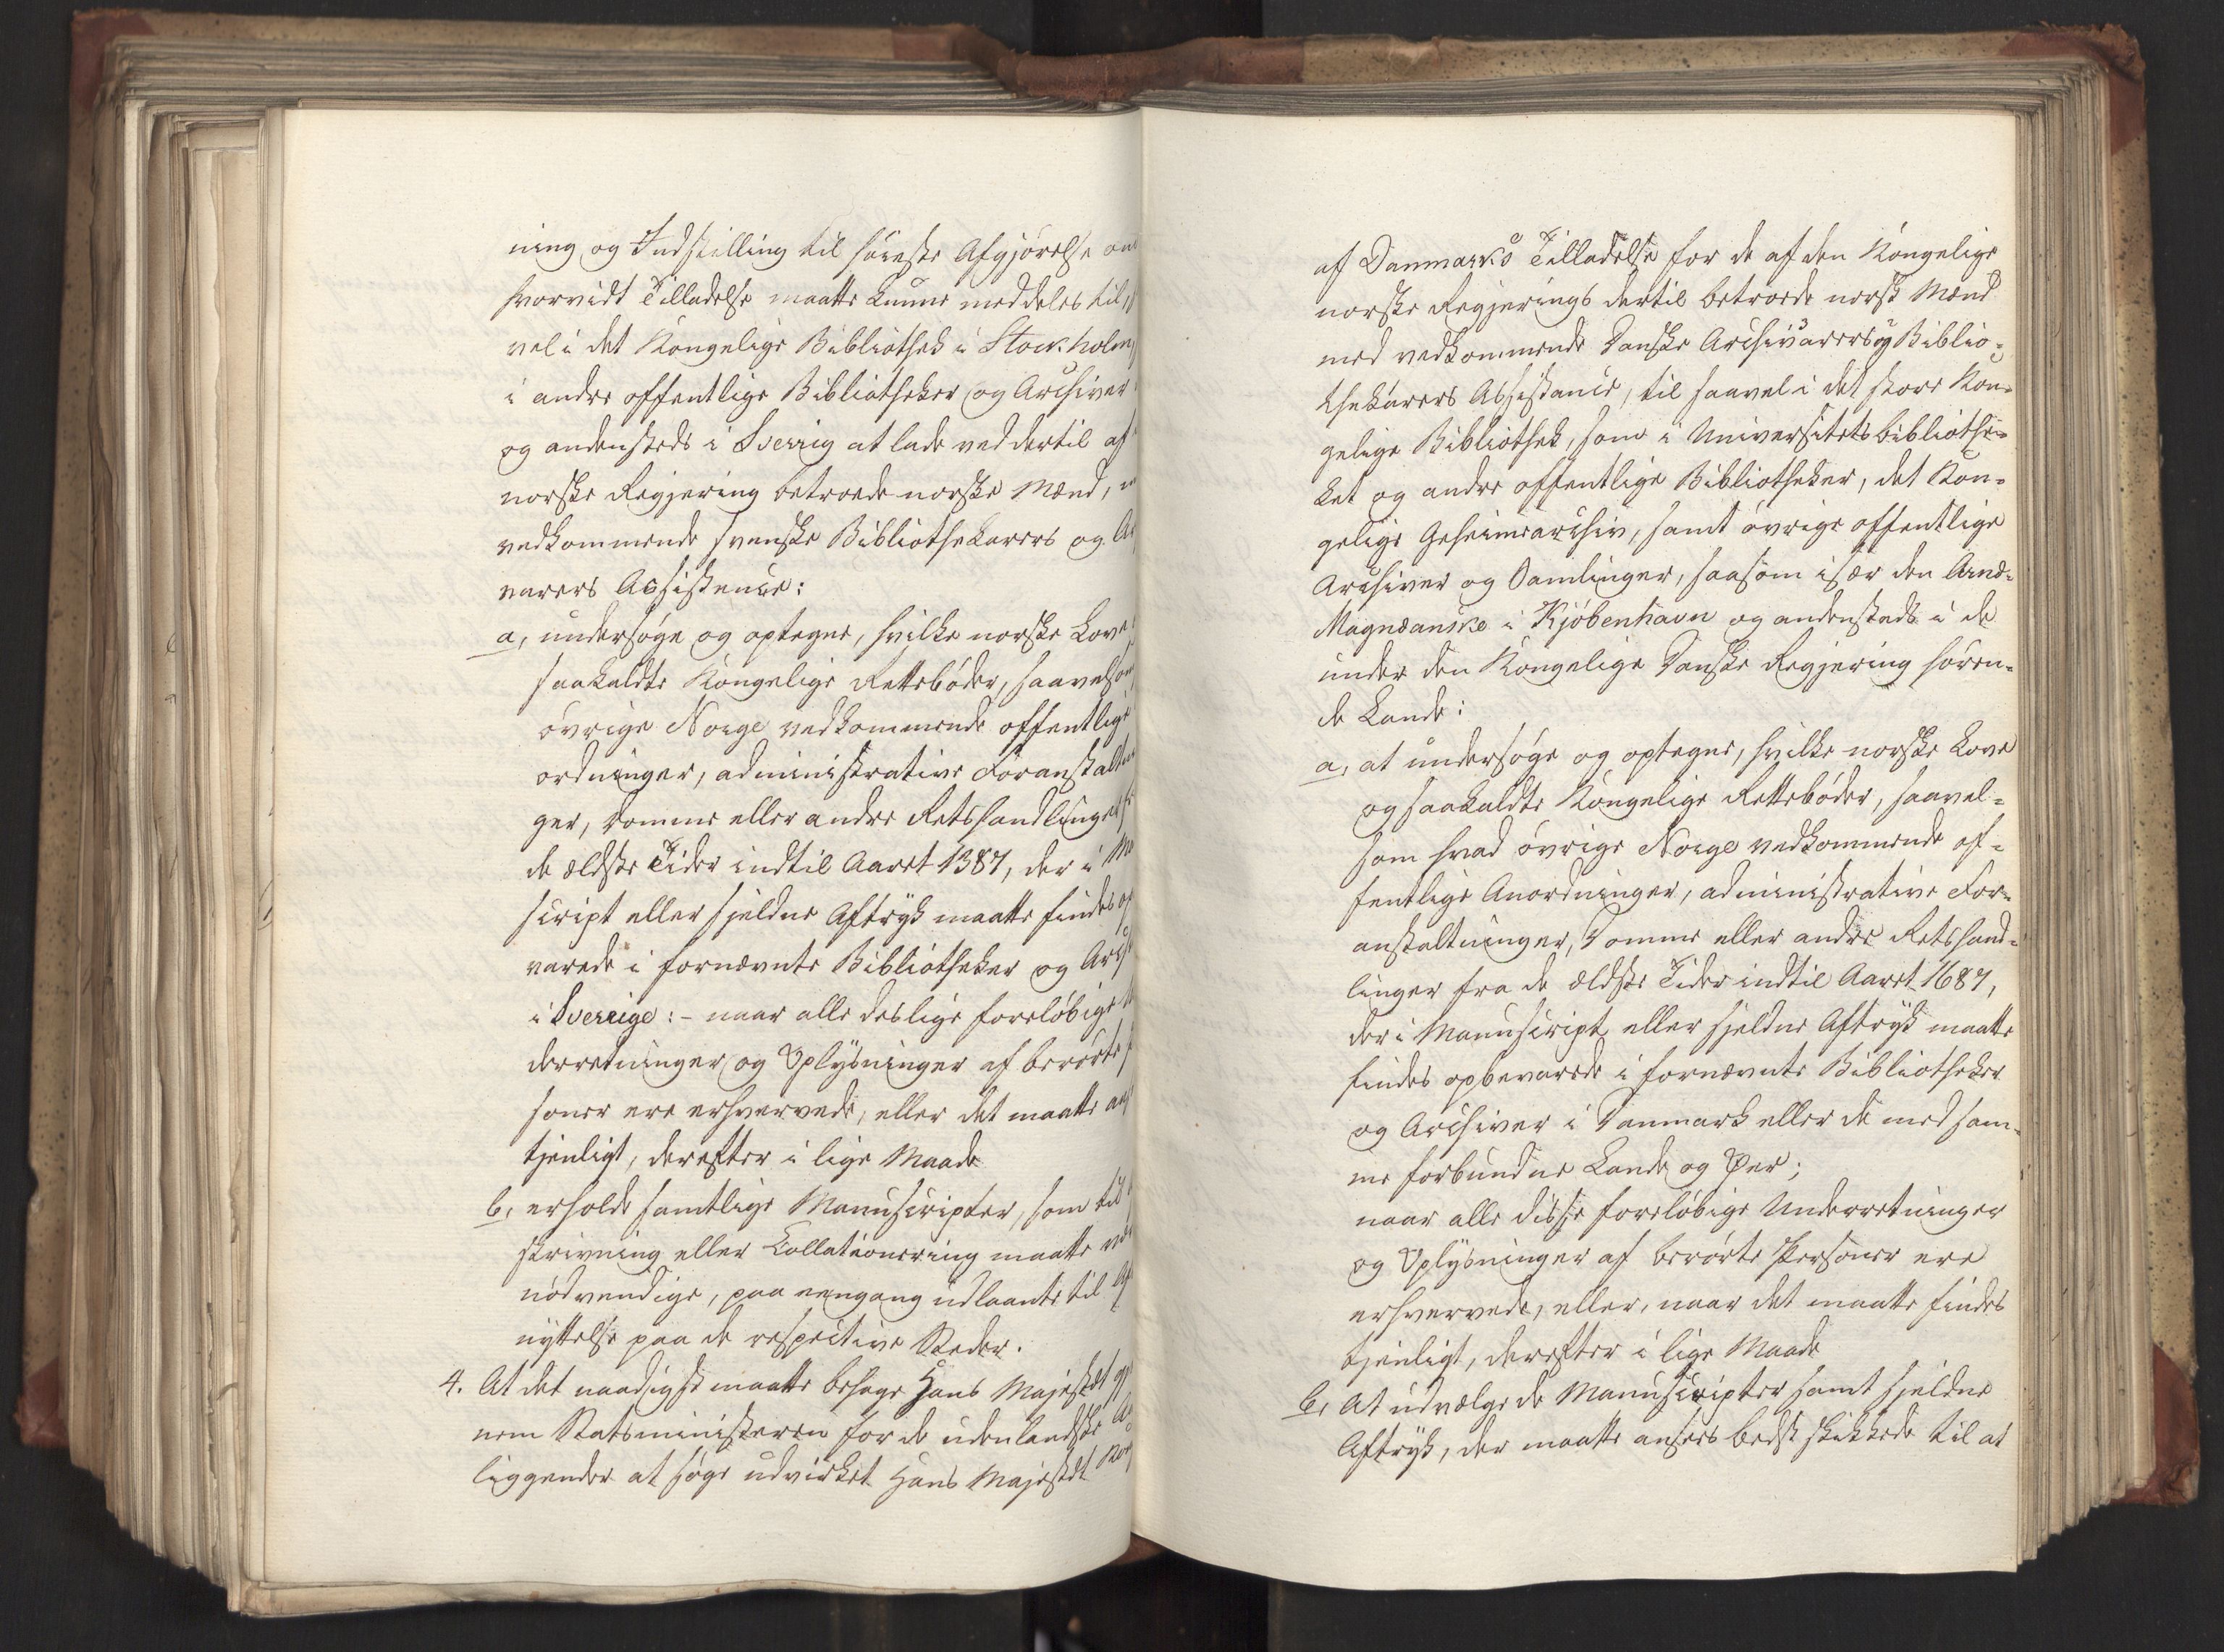 ning og Indstilling til høieste Afgjørelse om
hvorvidt Tilladelse maatte kunne meddeles til,
vel i det Kongelige Bibliothek i Stockholm,
i andre offentlige Bibliotheker og Archiver
og andensteds i Sverrig at lade ved dertil af
norske Regjering betroede norske Mænd,
vedkommende svenske Bibliothekarers og
varers Assistence:
a, undersøge og optegne, hvilke norske Love
saakaldte Kongelige Rettebøder, saavelsom
øvrige Norge vedkommende offentlige
ordninger, administrative Foranstaltnin
ger, Domme eller andre Retshandlinger
de ældste Tider indtil Aaret 1387, der i
script eller sjeldne Aftryk maatte findes op
varede i fornævnte Bibliotheker og Arch
i Sverrige: - naar alle deslige foreløbige
derretninger og Oplysninger af berørte
soner ere erhvervede, eller det maatte
tjenligt, derefter i lige Maade
b, erholde samtlige Manuscripter, som til
skrivning eller Collationering maatte
nødvendige, paa eengang udlaante til
nyttelse paa de respective Steder.
4. At det naadigst maatte behage Hans Majestæt
nem Statsministeren for de udenlandske
liggender at søge udvirket Hans Majestæt
af Danmarks Tilladelse for de af den Kongelige
norske Regjerings dertil betroede norsk Mænd
med vedkommende Danske Archivarers og Biblio-
thekarers Assistance, til saavel i det store Kon-
gelige Bibliothek, som i Universitets bibliothe-
ket og andre offentlige Bibliotheker, det Kon-
gelige Geheimearchiv, samt øvrige offentlige
Archiver og Samlinger, saasom især den Arnæ-
Magnæanske i Kjøbenhavn og andensteds i de
under den Kongelige Danske Regjering høren-
de Lande:
a, at undersøge og optegne, hvilke norske Love
og saakaldte Kongelige Rettebøder, saavel-
som hvad øvrige Norge vedkommende of-
fentlige Anordninger, administrative For-
anstaltninger, Domme eller andre Retshand-
linger fra de ældste Tider indtil Aaret 1687,
der i Manuscript eller sjeldne Aftryk maatte
findes opbevarede i fornævnte Bibliotheker
og Archiver i Danmark eller de med sam-
me forbundne Lande og Øer;
naar alle disse foreløbige Underretninger
og Oplysninger af berørte Personer ere
erhvervede, eller, naar det maatte findes
tjenligt, derefter i lige Maade
b, At udvælge de Manuscripter samt sjeldne
Aftryk, der maatte ansees bedst skikkede til at